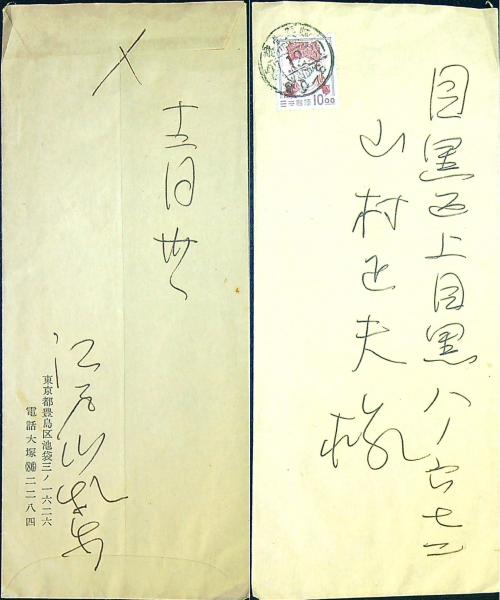 〆
十二月廿八
江戸川乱歩
東京都豊島区池袋三ノ一六二六
電話大塚(86)二二八四
日本郵便
10.00
目黒区上目黒八ノ六七二
山村正夫
様